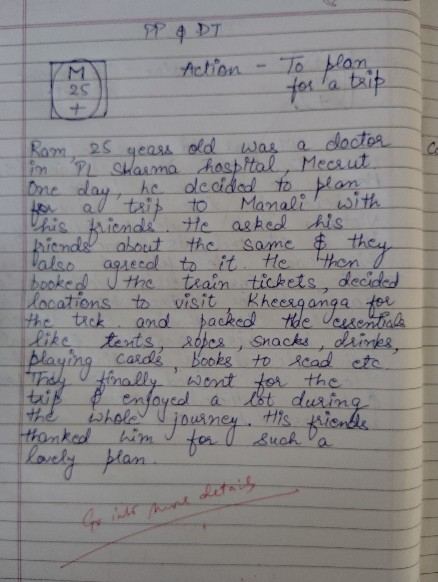 PP & DT
M
25
+
Action - To plan
for a trip
Ram, 25 years old was a doctor
in PL Sharma hospital, Meerut
One day, he decided to plan
for a trip to Manali with
his friends. He asked his
friends about the same & they
also agreed to it. He then
booked the train tickets, decided
locations to visit, Kheerganga for
the trek and packed the essentials
like tents, ropes, snacks, drinks,
playing cards, books to read etc.
They finally went for the
trip & enjoyed a lot during
the whole journey. His friends
thanked him for such a
lovely plan.
Go into more details